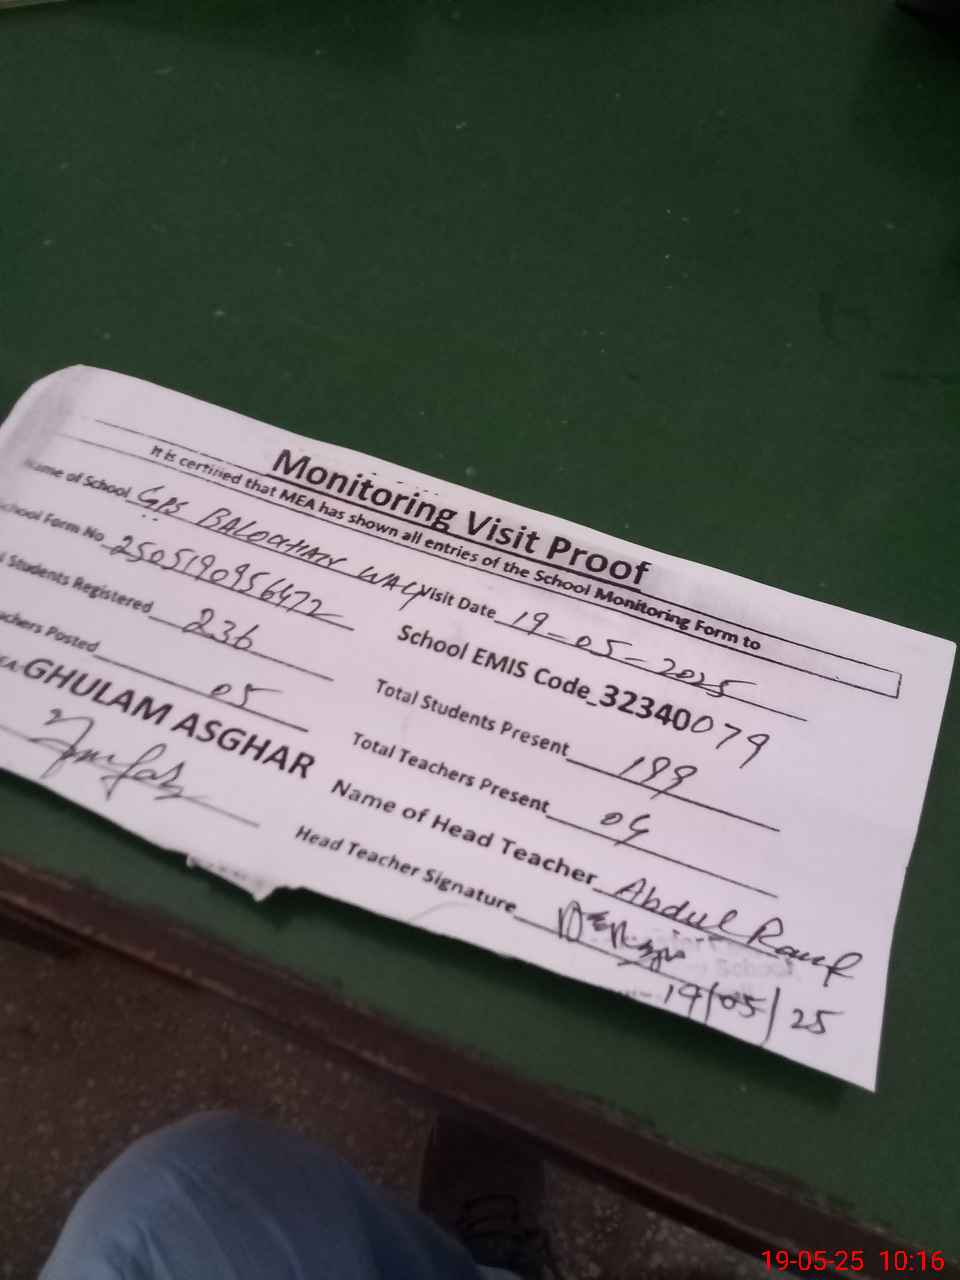 Monitoring Visit Proof
It is certified that MEA has shown all entries of the School Monitoring Form to
Name of School GPS BALOCHAN WALI Visit Date 19-05-2025
School Form No 2505190956472 School EMIS Code 32340079
Students Registered 236 Total Students Present 199
Teachers Posted 05 Total Teachers Present 04
GHULAM ASGHAR Name of Head Teacher Abdul Rauf
Head Teacher Signature
School
19/05/25
19-05-25 10:16